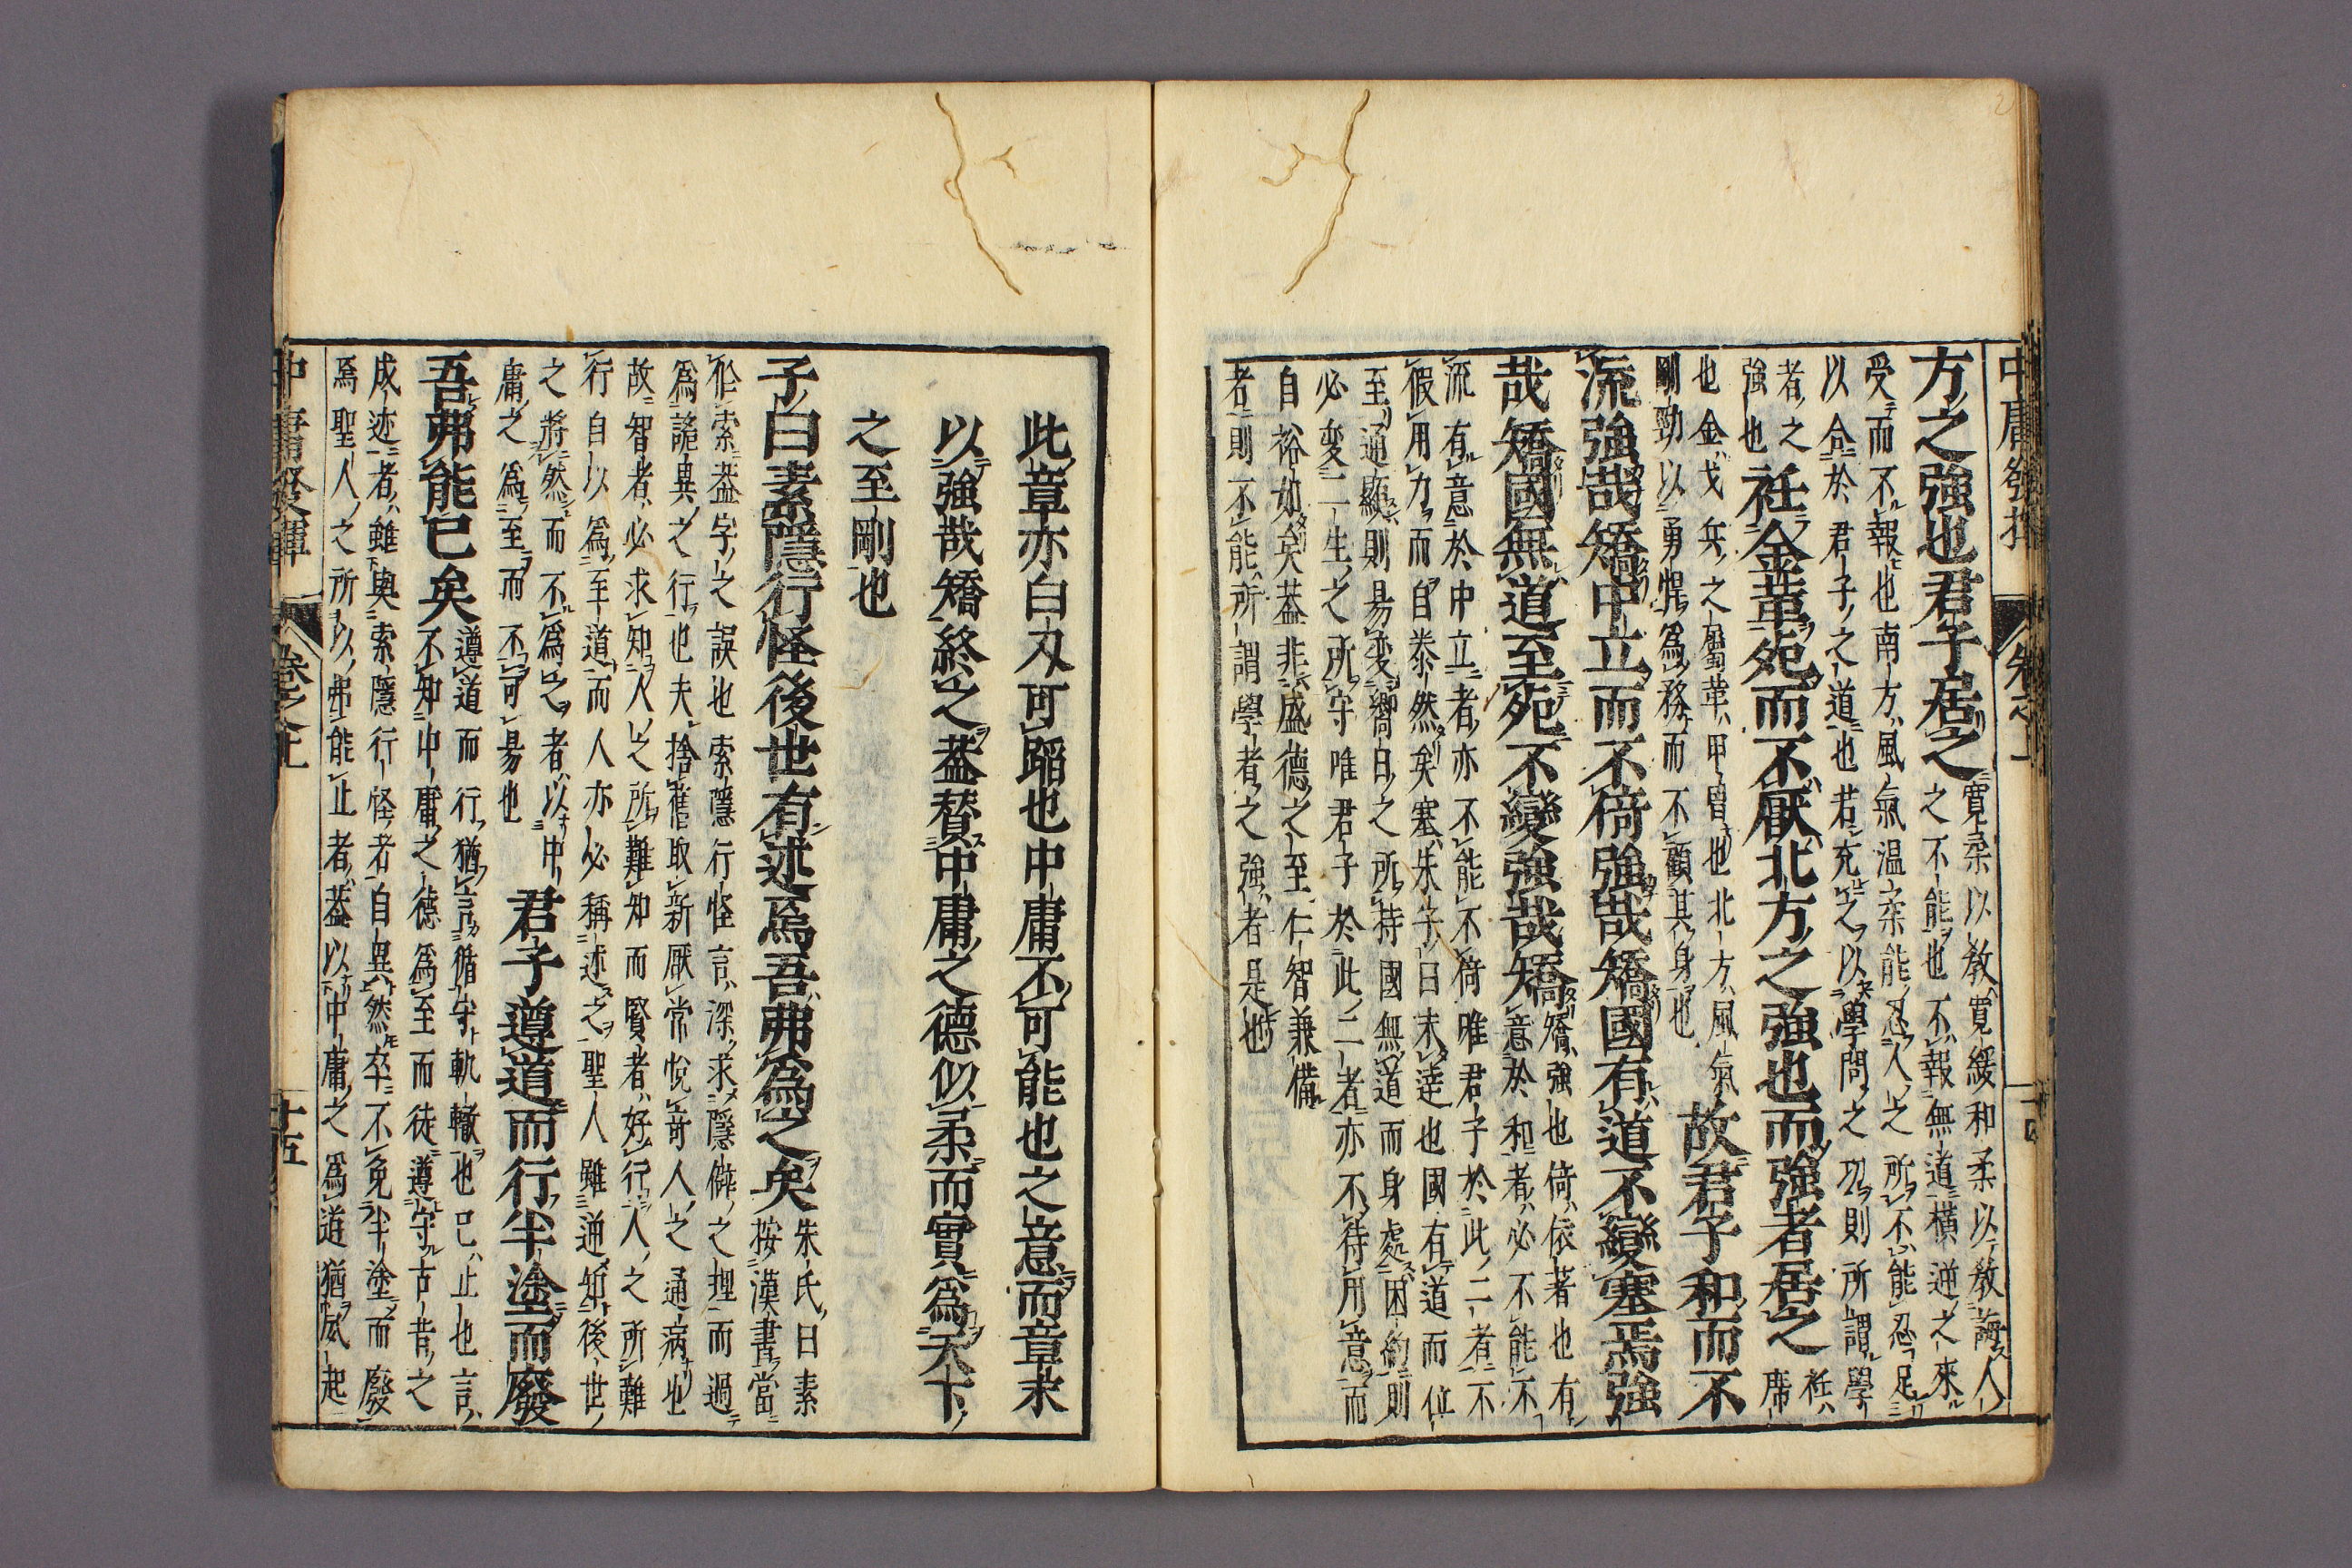 方之強也君子居之 寛柔以教寛緩和柔以教誨人
之不能也不報無道橫逆之來
受而不報也南方風氣温柔能忍人之所不能忍足
以合於君子之道也若充之以學問之功則所謂學
者之強也 衽金革死而不厭北方之強也而強者居之 衽席
也金戈兵之屬革甲冑也北方風氣
剛勁以勇悍為務而不顧其身也 故君子和而不
流強哉矯中立而不倚強哉矯國有道不變塞焉強
哉矯國無道至死不變強哉矯 矯強也倚依著也有
意於和者必不能不
流有意於中立者亦不能不倚唯君子於此二者不
假用力而自泰然矣塞朱子曰未達也國有道而位
至通顯則易変嚮日之所持國無道而身處困約則
必変二生之所守唯君子於此二者亦不待用意而
自裕如矣蓋非盛德之至仁智兼備
者則不能所謂學者之強者是也
中庸發揮 卷之上 十四
此章亦白刃可蹈也中庸不可能也之意而章末
以強哉矯終之蓋贊中庸之德似柔而實為天下
之至剛也
子曰素隱行怪後世有述焉吾弗為之矣 朱氏曰素
按漢書當
作索蓋字之誤也索隱行怪言深求隱僻之理而過
為詭異之行也夫捨舊取新厭常悅奇人之通病也
故智者必求知人之所難知而賢者好行人之所難
行自以為至道而人亦必稱述之聖人雖逆知後世
之將然而不為之者以中
庸之為至而不可易也 君子遵道而行半塗而廢
吾弗能已矣 遵道而行猶言循守軌轍也已止也言
不知中庸之德為至而徒遵守古昔之
成迹者雖與索隱行怪者自異然卒不免半塗而廢
焉聖人之所以弗能止者蓋以中庸之為道猶夙起
中庸發揮 卷之上 十五